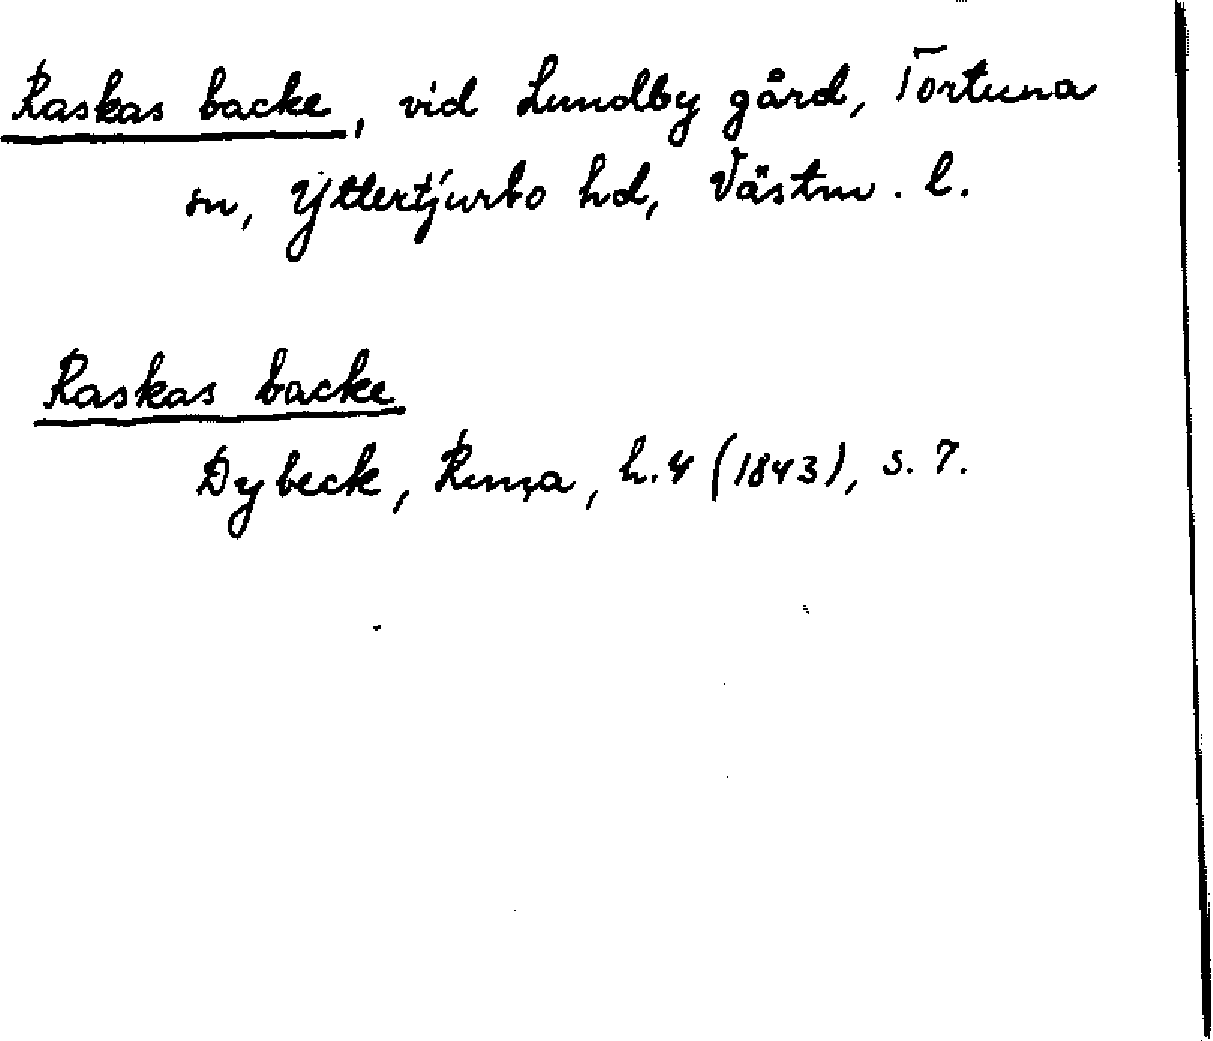 Raskas backe, vid Lundby gård, Tortuna
sn, Yttertjurbo hd, Västm. l.
Raskas backe
Dybeck, Runa, h. 4 (1843), s. 7.